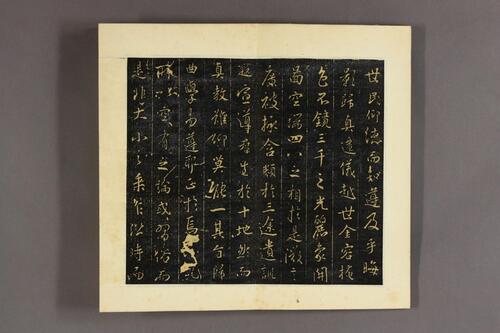 世民仰德而知遵及乎晦
影歸真遷儀越世金容掩
色不鏡三千之光麗象開
圖空端四八之相於是微言
廣被拯含類於三途遺訓
遐宣導群生於十地然而
真教難仰莫能一其旨歸
曲學易遵耶正於焉糺
所以空有之論或習俗而
是非大小之乘乍沿時而